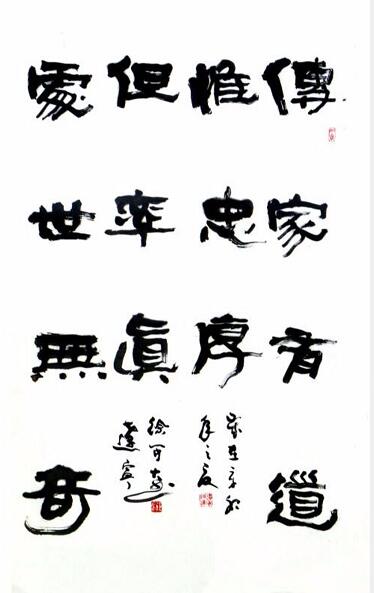 傳家有道
惟忠厚
處世無奇
但率眞
歲在辛卯
年之夏